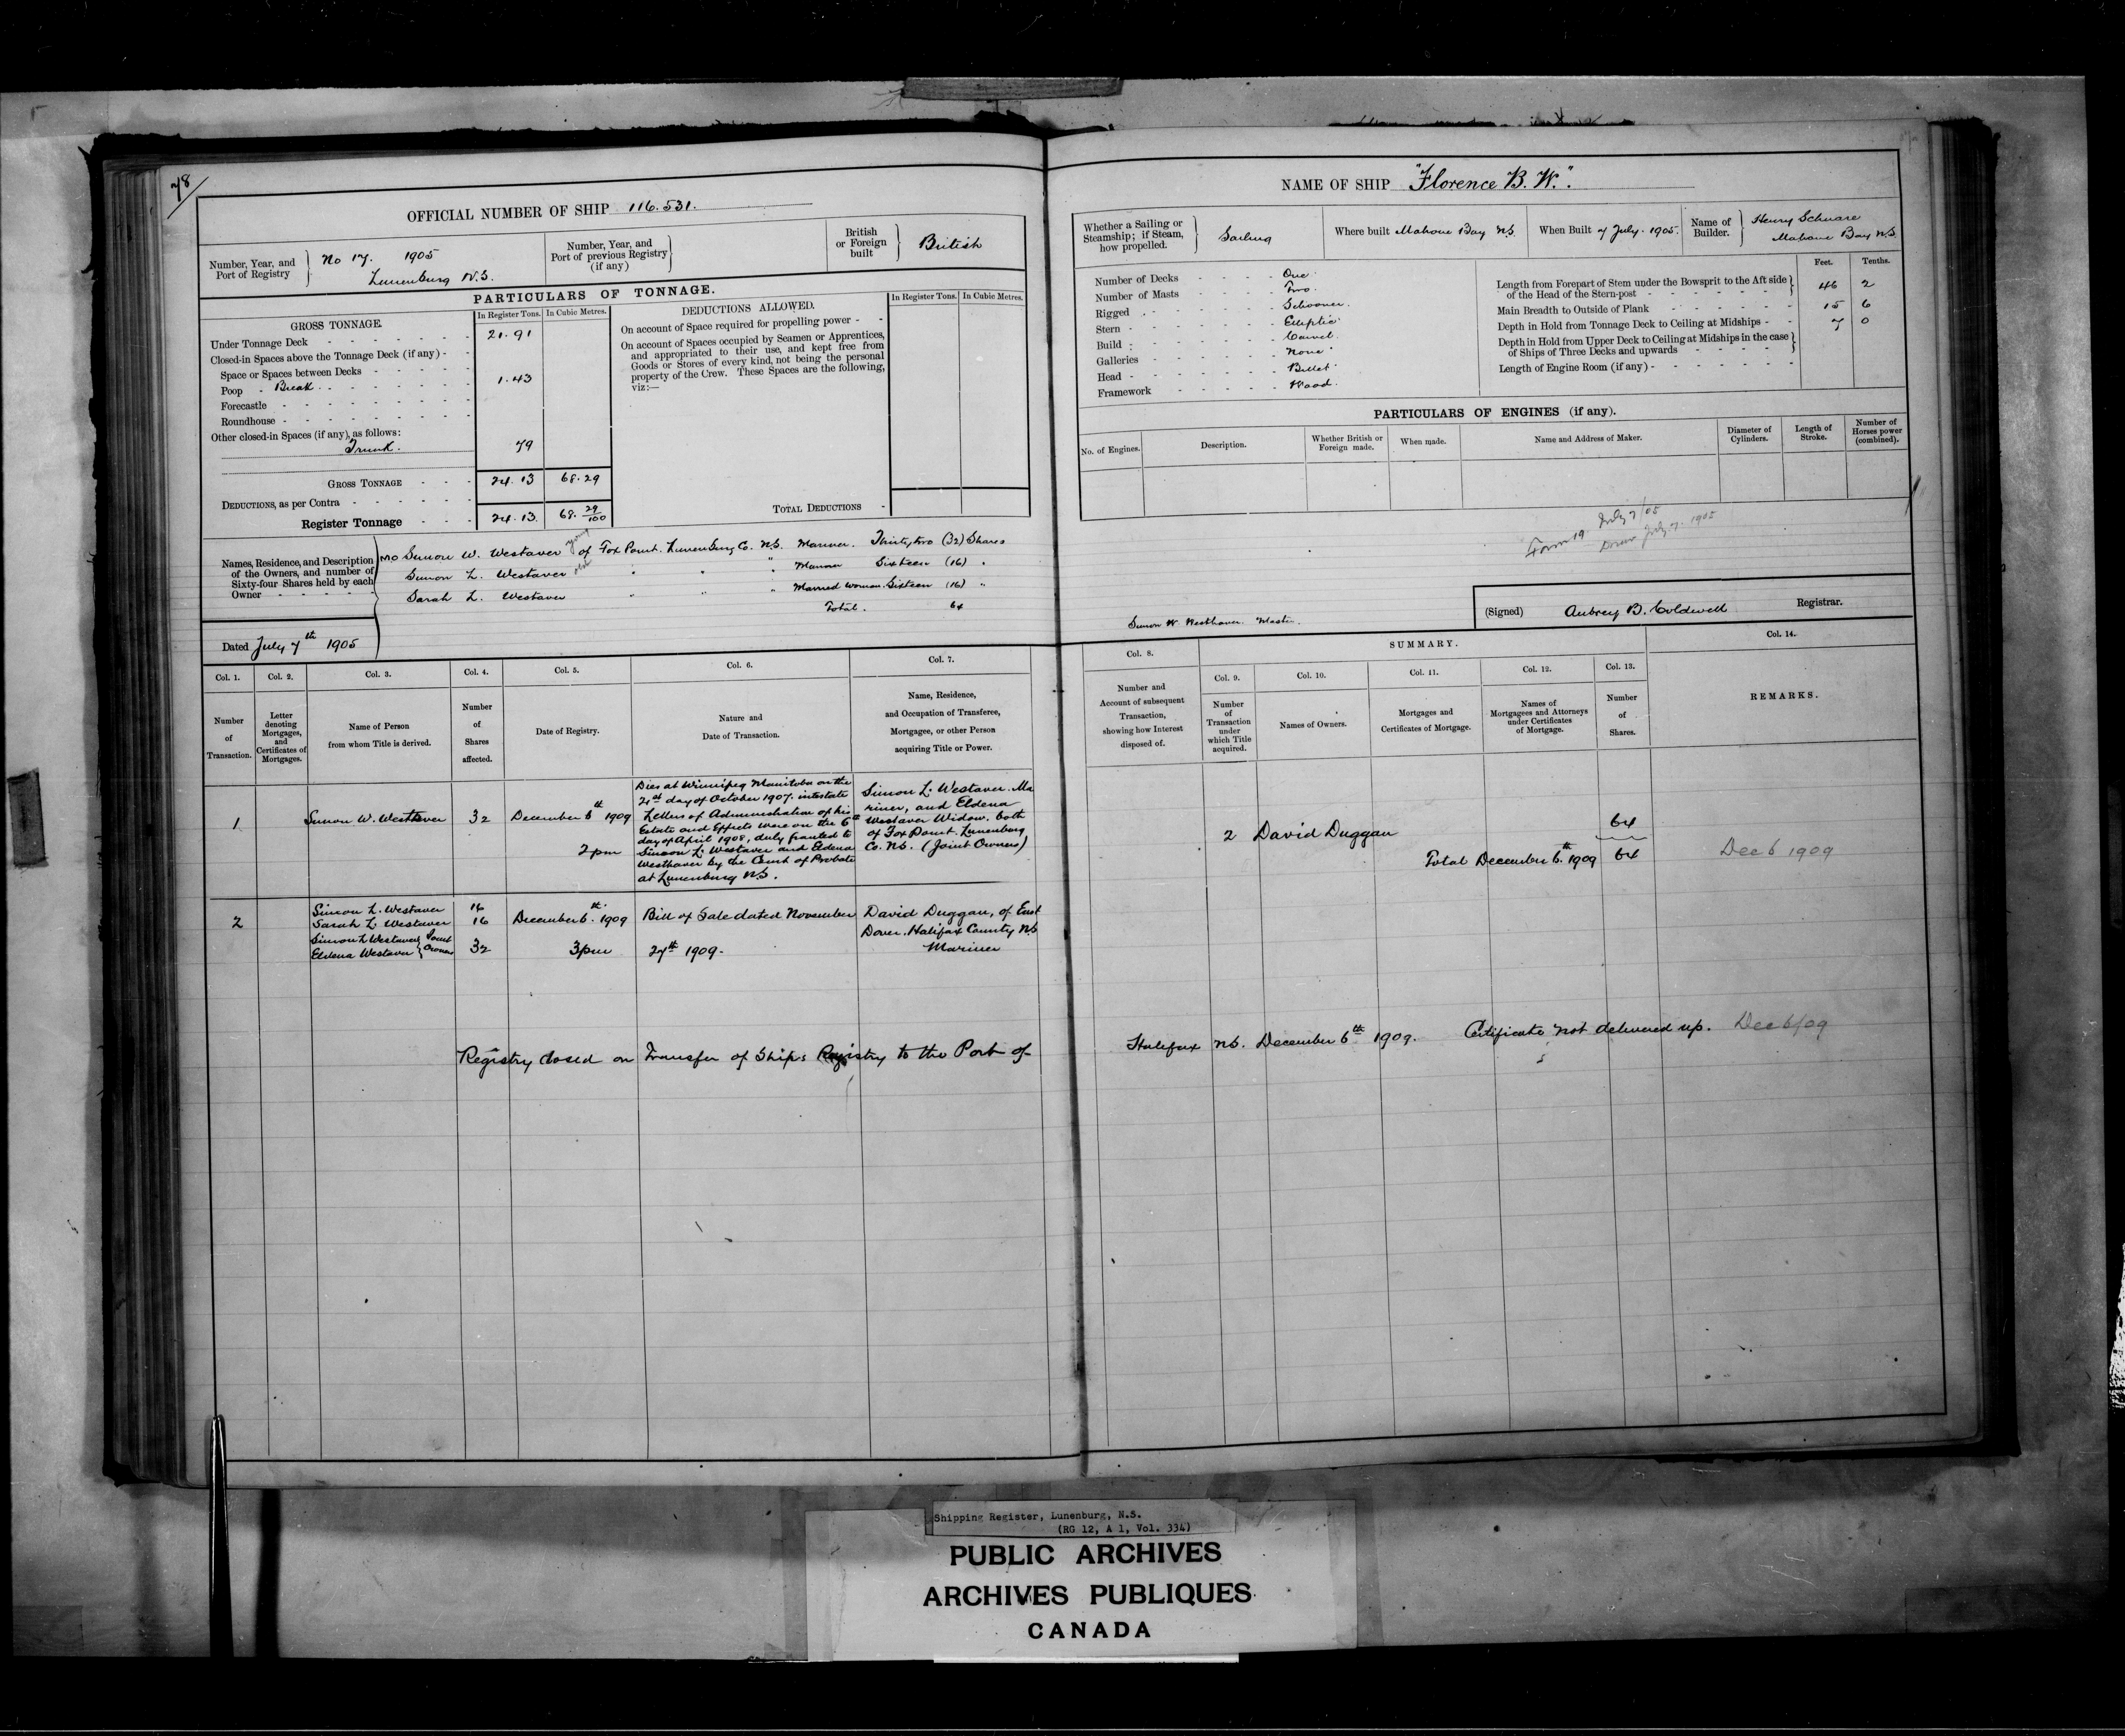 78/
OFFICIAL NUMBER OF SHIP 116.531.
Number, Year, and Port of Registry
No 17. 1905
Lunenburg N.S.
Number, Year, and Port of previous Registry (if any)
British or Foreign built
British
PARTICULARS OF TONNAGE.
GROSS TONNAGE.
In Register Tons.
In Cubic Metres.
Under Tonnage Deck 21.91
Closed-in Spaces above the Tonnage Deck (if any)
Space or Spaces between Decks
Poop Break 1.43
Forecastle
Roundhouse
Other closed-in Spaces (if any), as follows:
Trunk. 79
GROSS TONNAGE 24.13 68.29
DEDUCTIONS, as per Contra
Register Tonnage 24.13. 68. 29/100
DEDUCTIONS ALLOWED.
In Register Tons.
In Cubic Metres.
On account of Space required for propelling power
On account of Spaces occupied by Seamen or Apprentices,
and appropriated to their use, and kept free from
Goods or Stores of every kind, not being the personal
property of the Crew. These Spaces are the following,
viz:—
TOTAL DEDUCTIONS
Names, Residence, and Description
of the Owners, and number of
Sixty-four Shares held by each
Owner
Simon W. Westaver young of Fox Point. Lunenburg Co. N.S. Mariner. Thirty two (32) Shares
Simon L. Westaver " " " Mariner Sixteen (16) "
Sarah L. Westaver " " " Married Woman Sixteen (16) "
Total. 64
Dated July 7th 1905
Col. 1.
Number of Transaction.
Col. 2.
Letter denoting Mortgages, and Certificates of Mortgages.
Col. 3.
Name of Person from whom Title is derived.
Col. 4.
Number of Shares affected.
Col. 5.
Date of Registry.
Col. 6.
Nature and Date of Transaction.
Col. 7.
Name, Residence, and Occupation of Transferee, Mortgagee, or other Person acquiring Title or Power.
1
Simon W. Westaver
32
December 6th 1909
2 pm
Dies at Winnipeg Manitoba on the
21st day of October 1907. intestate
Letters of Administration of his
Estate and Effects were on the 6th
day of April 1908, duly granted to
Simeon L. Westaver and Eldena
Westhaver by the Court of Probate
at Lunenburg N.S.
Simon L. Westaver. Ma
riner, and Eldena
Westaver Widow. both
of Fox Point. Lunenburg
Co. N.S. (Joint Owners)
2
Simon L. Westaver 16
Sarah L. Westaver 16
Simon L Westaver
Eldena Westaver
Joint Owners 32
December 6th. 1909
3 pm
Bill of Sale dated November
27th 1909.
David Duggan, of East
Dover. Halifax County N.S
Mariner
Registry closed on Transfer of Ships Registry to the Port of
NAME OF SHIP "Florence B. W.".
Whether a Sailing or Steamship; if Steam, how propelled.
Sailing
Where built Mahone Bay N.S.
When Built 7 July. 1905.
Name of Builder.
Henry Schnare
Mahone Bay N.S.
Number of Decks One
Number of Masts Two.
Rigged Schooner.
Stern Elliptic
Build Carvel
Galleries None
Head Billet
Framework Wood.
Feet. Tenths.
Length from Forepart of Stem under the Bowsprit to the Aft side
of the Head of the Stern-post 46 2
Main Breadth to Outside of Plank 15 6
Depth in Hold from Tonnage Deck to Ceiling at Midships 7 0
Depth in Hold from Upper Deck to Ceiling at Midships in the case
of Ships of Three Decks and upwards
Length of Engine Room (if any)
PARTICULARS OF ENGINES (if any).
No. of Engines.
Description.
Whether British or Foreign made.
When made.
Name and Address of Maker.
Diameter of Cylinders.
Length of Stroke.
Number of Horses power (combined).
July 7/05
Form 19 July 7. 1905
Simon W. Westhaver. Master.
(Signed) Aubrey B. Coldwell Registrar.
SUMMARY.
Col. 8.
Number and Account of subsequent Transaction, showing how Interest disposed of.
Col. 9.
Number of Transaction under which Title acquired.
Col. 10.
Names of Owners.
Col. 11.
Mortgages and Certificates of Mortgage.
Col. 12.
Names of Mortgagees and Attorneys under Certificates of Mortgage.
Col. 13.
Number of Shares.
Col. 14.
REMARKS.
2 David Duggan 64
Total December 6th. 1909 64 Dec 6 1909
Halifax N.S. December 6th 1909. Certificate not delivered up. Dec 6/09
Shipping Register, Lunenburg, N.S.
(RG 12, A 1, Vol. 334)
PUBLIC ARCHIVES
ARCHIVES PUBLIQUES
CANADA